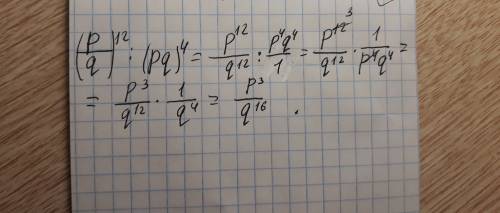 (p/q)^12 : (pq)^4 = p^12/q^12 : p^4q^4/1 = p^12̶ ^3/q^12 · 1/p̶^4̶q^4 =
= p^3/q^12 · 1/q^4 = p^3/q^16 .